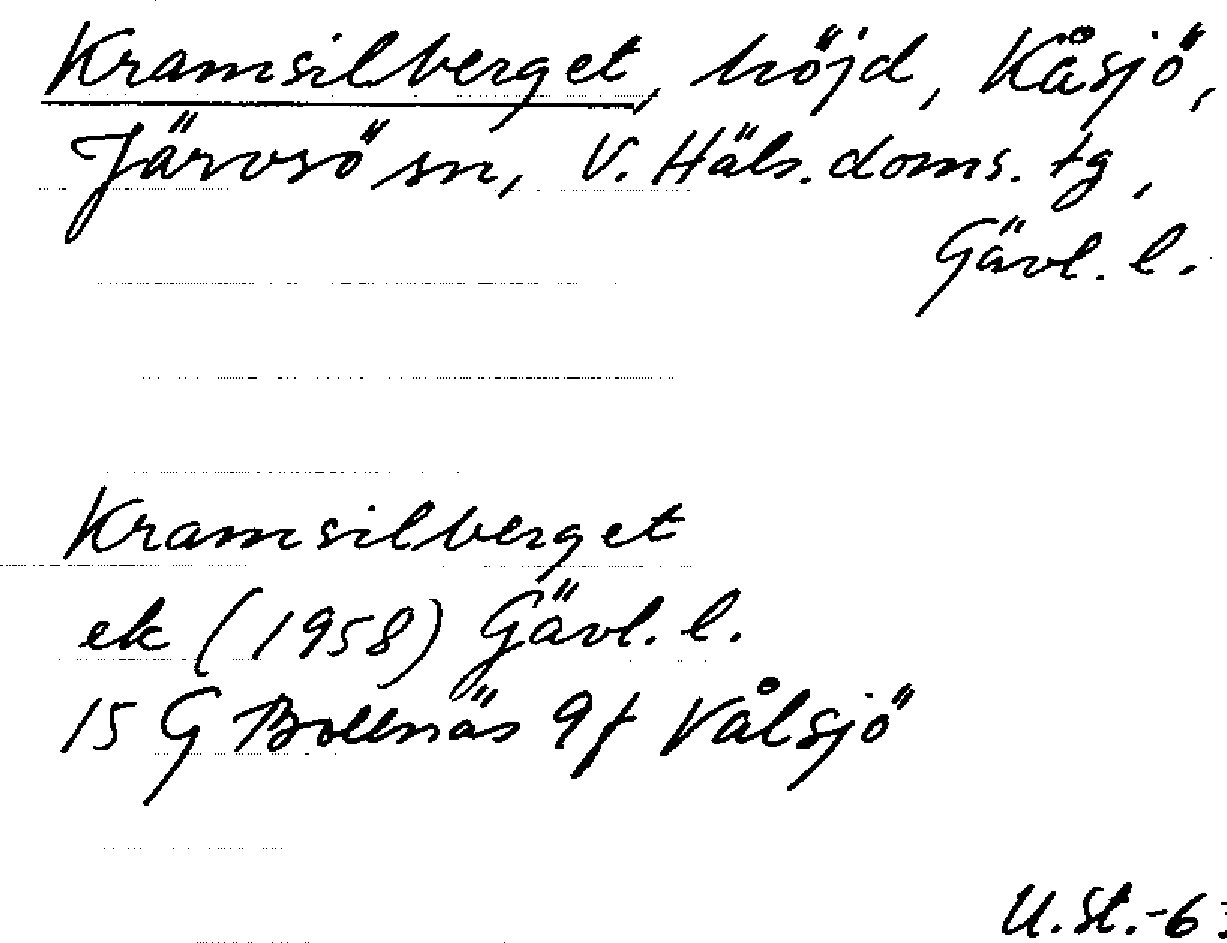 Kramsilberget, höjd, Kåsjö,
Järvsö sn, V. Häls. doms. tg,
Gävl. l.
Kramsilberget
ek (1958) Gävl. l.
15 G Bollnäs 9f Vålsjö
U.St.-6